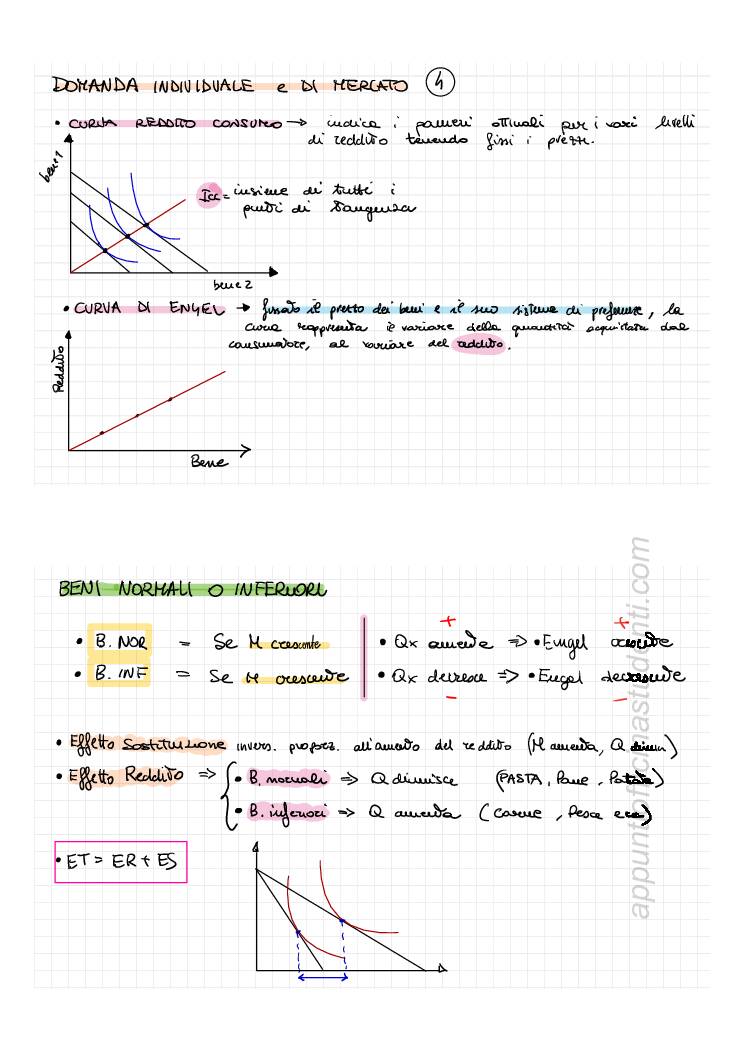 DOMANDA INDIVIDUALE e DI MERCATO 4
• CURVA REDDITO CONSUMO → indica i panieri ottimali per i vari livelli
di reddito tenendo fissi i prezzi.
bene 1
Icc = insieme di tutti i
punti di tangenza
bene 2
• CURVA DI ENGEL → fissato il prezzo dei beni e il suo sistema di preferenze, la
curva rappresenta il variare della quantità acquistata dal
consumatore, al variare del reddito.
Reddito
Bene
BENI NORMALI O INFERIORI
• B. NOR = Se M crescente • Qx aumenta => • Engel crescente
+ +
• B. INF = Se M crescente • Qx decresce => • Engel decrescente
- -
• Effetto Sostituzione invers. proporz. all'aumento del reddito (M aumenta, Q dimin)
• Effetto Reddito => • B. normali => Q diminisce (PASTA, Pane, Patate)
• B. inferiori => Q aumenta (carne, Pesce ecc)
• ET = ER + ES
appuntiofficinastudenti.com